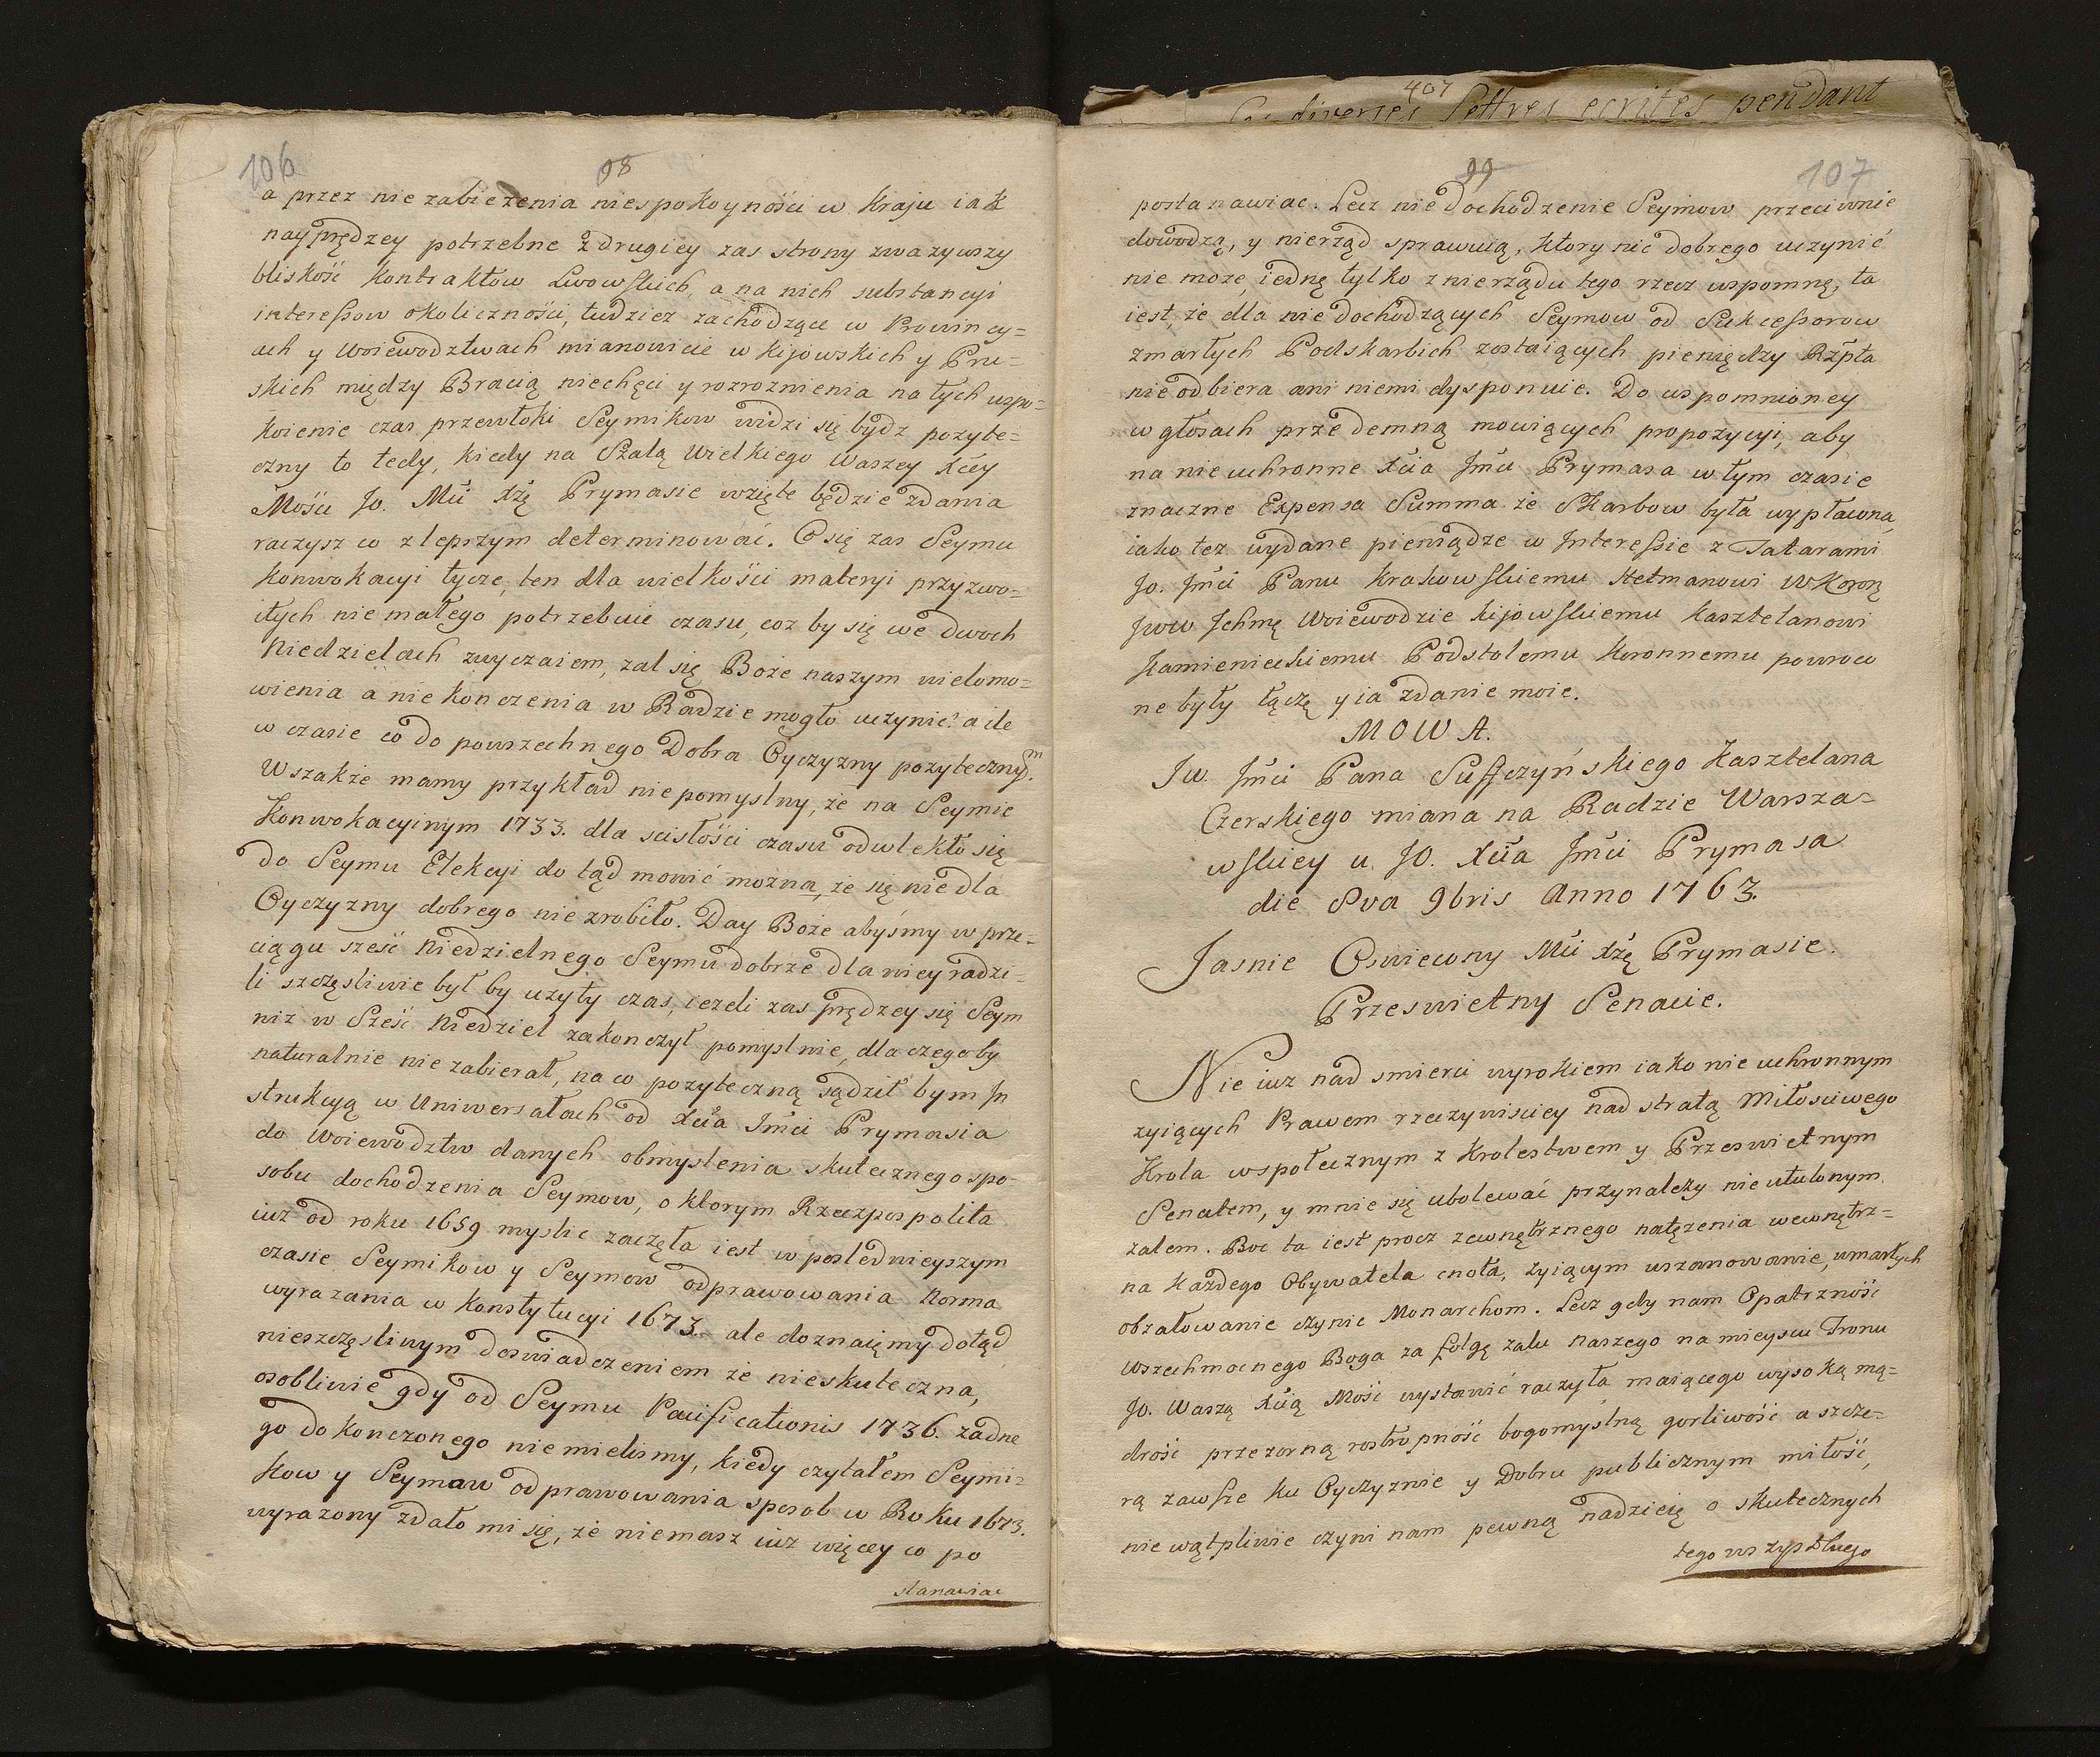 106
98
a przez nie zabiezenia niespokoynośći w kraju iak
nayprędzey potrzebne z drugiey zas strony zwazywszy
bliskość kontraktow Lwowskich, a na nich substancyi
interessow okolicznośći, tudziez zachodzące w Prowincy=
ach y Woiewodztwach mianowicie w kijowskich y Pru=
skich między Bracią niechęci y rozroznienia na tych uspo=
koienie czas przewłoki Seymikow widzi się bydz pozyte=
czny to tedy, kiedy na Szalą Wielkiego Waszey Xcey
Mośći Jo. Mći Xżę Prymasie wzięte będzie zdania
raczysz co z lepszym determinować. Co się zas Seymu
konwokacyi tycze, ten dla wielkośći materyi przyzwo=
itych nie małego potrzebuie czasu, coz by się we dwoch
Niedzielach zwyczaiem, zal się Boże naszym wielomo=
wienia a nie konczenia w Radzie mogło uczynić? a ile
w czasie co do powszechnego Dobra Oyczyzny pozytecznym.
Wszakże mamy przykład nie pomyslny, że na Seymie
Konwokacyinym 1733. dla scisłośći czasu odwlekło się
do Seymu Elekcyi do tąd mowić mozna, ze się nie dla
Oyczyzny dobrego nie zrobiło. Day Boże abyśmy w prze=
ciągu sześć Niedzielnego Seymu dobrze dla niey radzi=
li szczęsliwie był by uzyty czas, iezeli zas prędzey się Seym
niz w Sześć Niedziel zakonczył pomyslnie, dla czegoby
naturalnie nie zabierał, na co pozyteczną sądził bym In
strukcyą w Uniwersałach od Xcia Imći Prymasia
do Woiewodztw danych obmyslenia skutecznego spo=
sobu dochodzenia Seymow, o ktorym Rzeczpospolita
iuz od roku 1659 myslic zaczęta iest w poslednieyszym
czasie Seymikow y Seymow odprawowania Norma
wyrazania w konstytucyi 1673. ale doznaięmy dotąd
nieszczęsliwym doswiadczeniem że nieskuteczna,
osobliwie gdy od Seymu Pacificationis 1736. zadne
go dokonczonego nie mielismy, kiedy czytałem Seymi=
kow y Seymow odprawowania sposob w Roku 1673.
wyrazony zdało mi się, że niemasz iuz więcey co po
stanawiac
407
diverses Lettres ecrites pendant
99
107
postanawiac. Lecz nie dochodzenie Seymow przeciwnie
dowodzą, y nierząd sprawuią, ktory nic dobrego uczynić
nie może, iednę tylko z nierządu tego rzecz wspomnę, ta
iest, że dla nie dochodzących Seymow od Sukcessorow
zmarłych Podskarbich zostaiących pieniędzy Rzpta
nie odbiera ani niemi dysponuie. Do wspomnioney
w głosach przedemną mowiących propozycyi, aby
na nie uchronne Xcia Jmći Prymasa w tym czasie
znaczne Expensa Summa ze Skarbow była wypłacona,
iako tez wydane pieniądze w Interessie z Tatarami
Jo. Jmći Panu Krakowskiemu Hetmanowi WKoron
Jww Ichmę Woiewodzie kijowskiemu kasztelanowi
Kamienieckiemu Podstolemu Koronnemu powroco
ne były łączę y ia zdanie moie.
MOWA.
Jw. Jmći Pana Suffczyńskiego Kasztelana
Czerskięgo miana na Radzie Warsza=
wskiey u Jo. Xcia Jmći Prymasa
die 8va 9bris Anno 1763.
Jasnie Oswiecony Mći Xżę Prymasie.
Przeswietny Senacie.
Nie iuz nad smierci wyrokiem iako nie uchronnym
zyiących Prawem rzeczywisciey nad stratą Miłosciwego
Krola wspołecznym z Krolestwem y Przeswietnym
Senatem, y mnie się ubolewać przynalezy nie utulonym
zalem. Boc ta iest procz zewnętrznego natęzenia wewnętrz=
na każdego Obywatela cnota, zyiącym uszanowanie, umarłych
obzałowanie czynic Monarchom. Lecz gdy nam Opatrzność
Wszechmocnego Boga za folgę zalu naszego na mieyscu Tronu
Jo. Waszą Xcią Mość wystawić raczyła maiącego wysoką mą=
drość przezorną rostropność bogomyslną gorliwość a szcze=
rą zawsze ku Oyczyznie y Dobru publicznym miłość,
nie wątpliwie czyni nam pewną nadzieię o skutecznych